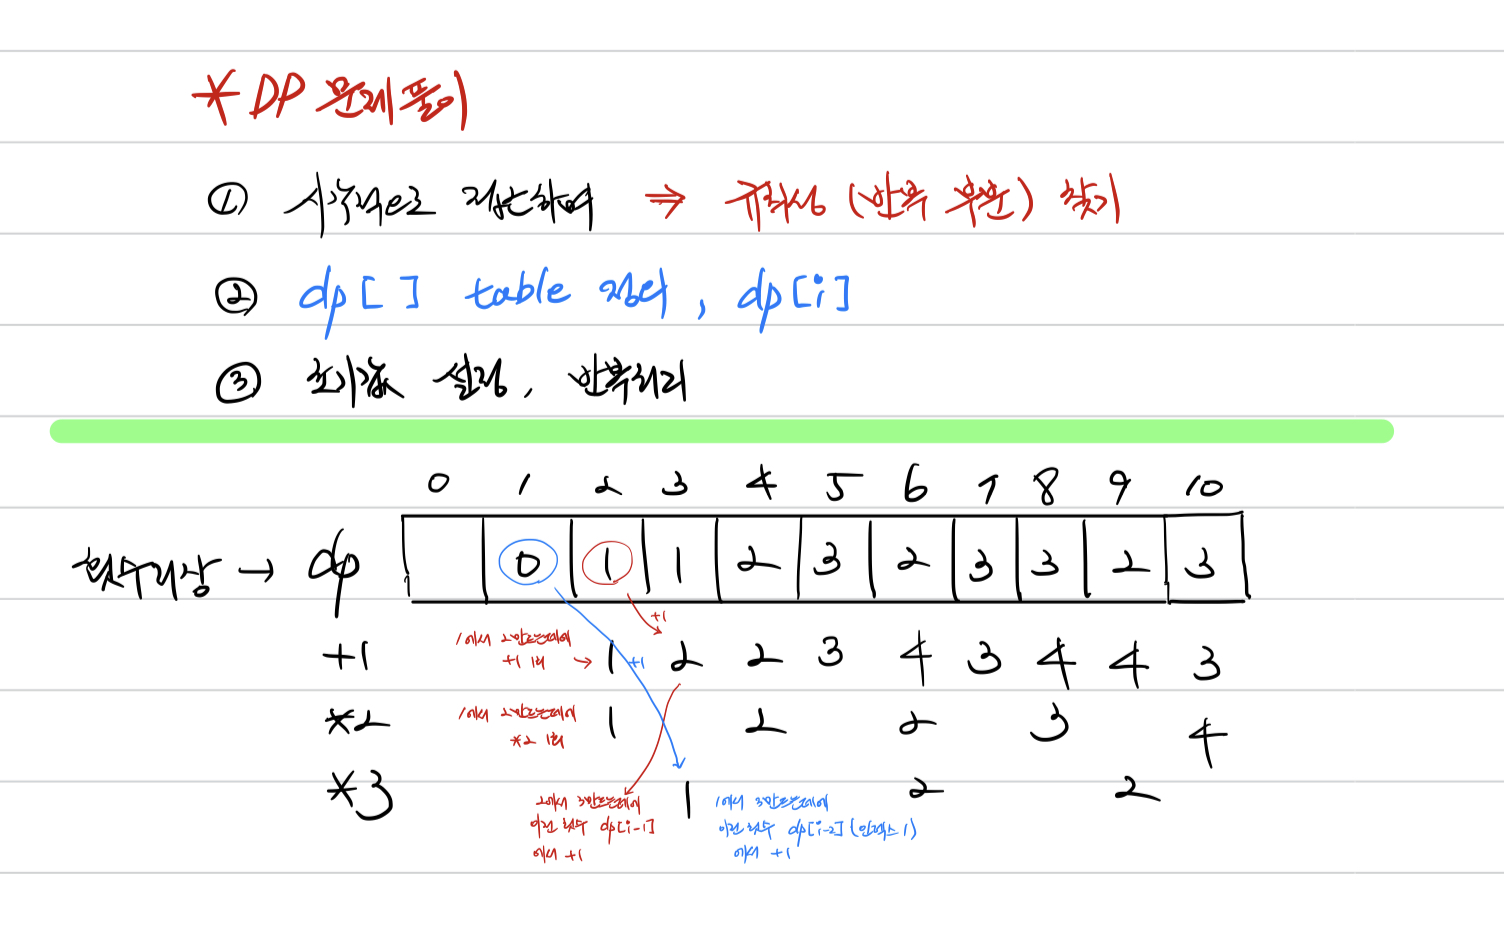 * DP 문제풀이
① 시각적으로 접근하여 ⇒ 규칙성 (반복 부분) 찾기
② dp[ ] table 정의, dp[i]
③ 초기값 설정, 반복처리
0 1 2 3 4 5 6 7 8 9 10
횟수저장 → dp 0 1 1 2 3 2 3 3 2 3
+1
1에서 2만드는데에
+1 1회 → 1 +1 2 2 3 4 3 4 4 3
+1
*2
1에서 2만드는데에
*2 1회
1 2 2 3 4
*3 1 2 2
2에서 3만드는데에
이전 횟수 dp[i-1]
에서 +1
1에서 3만드는데에
이전 횟수 dp[i-2] (인덱스 1)
에서 +1